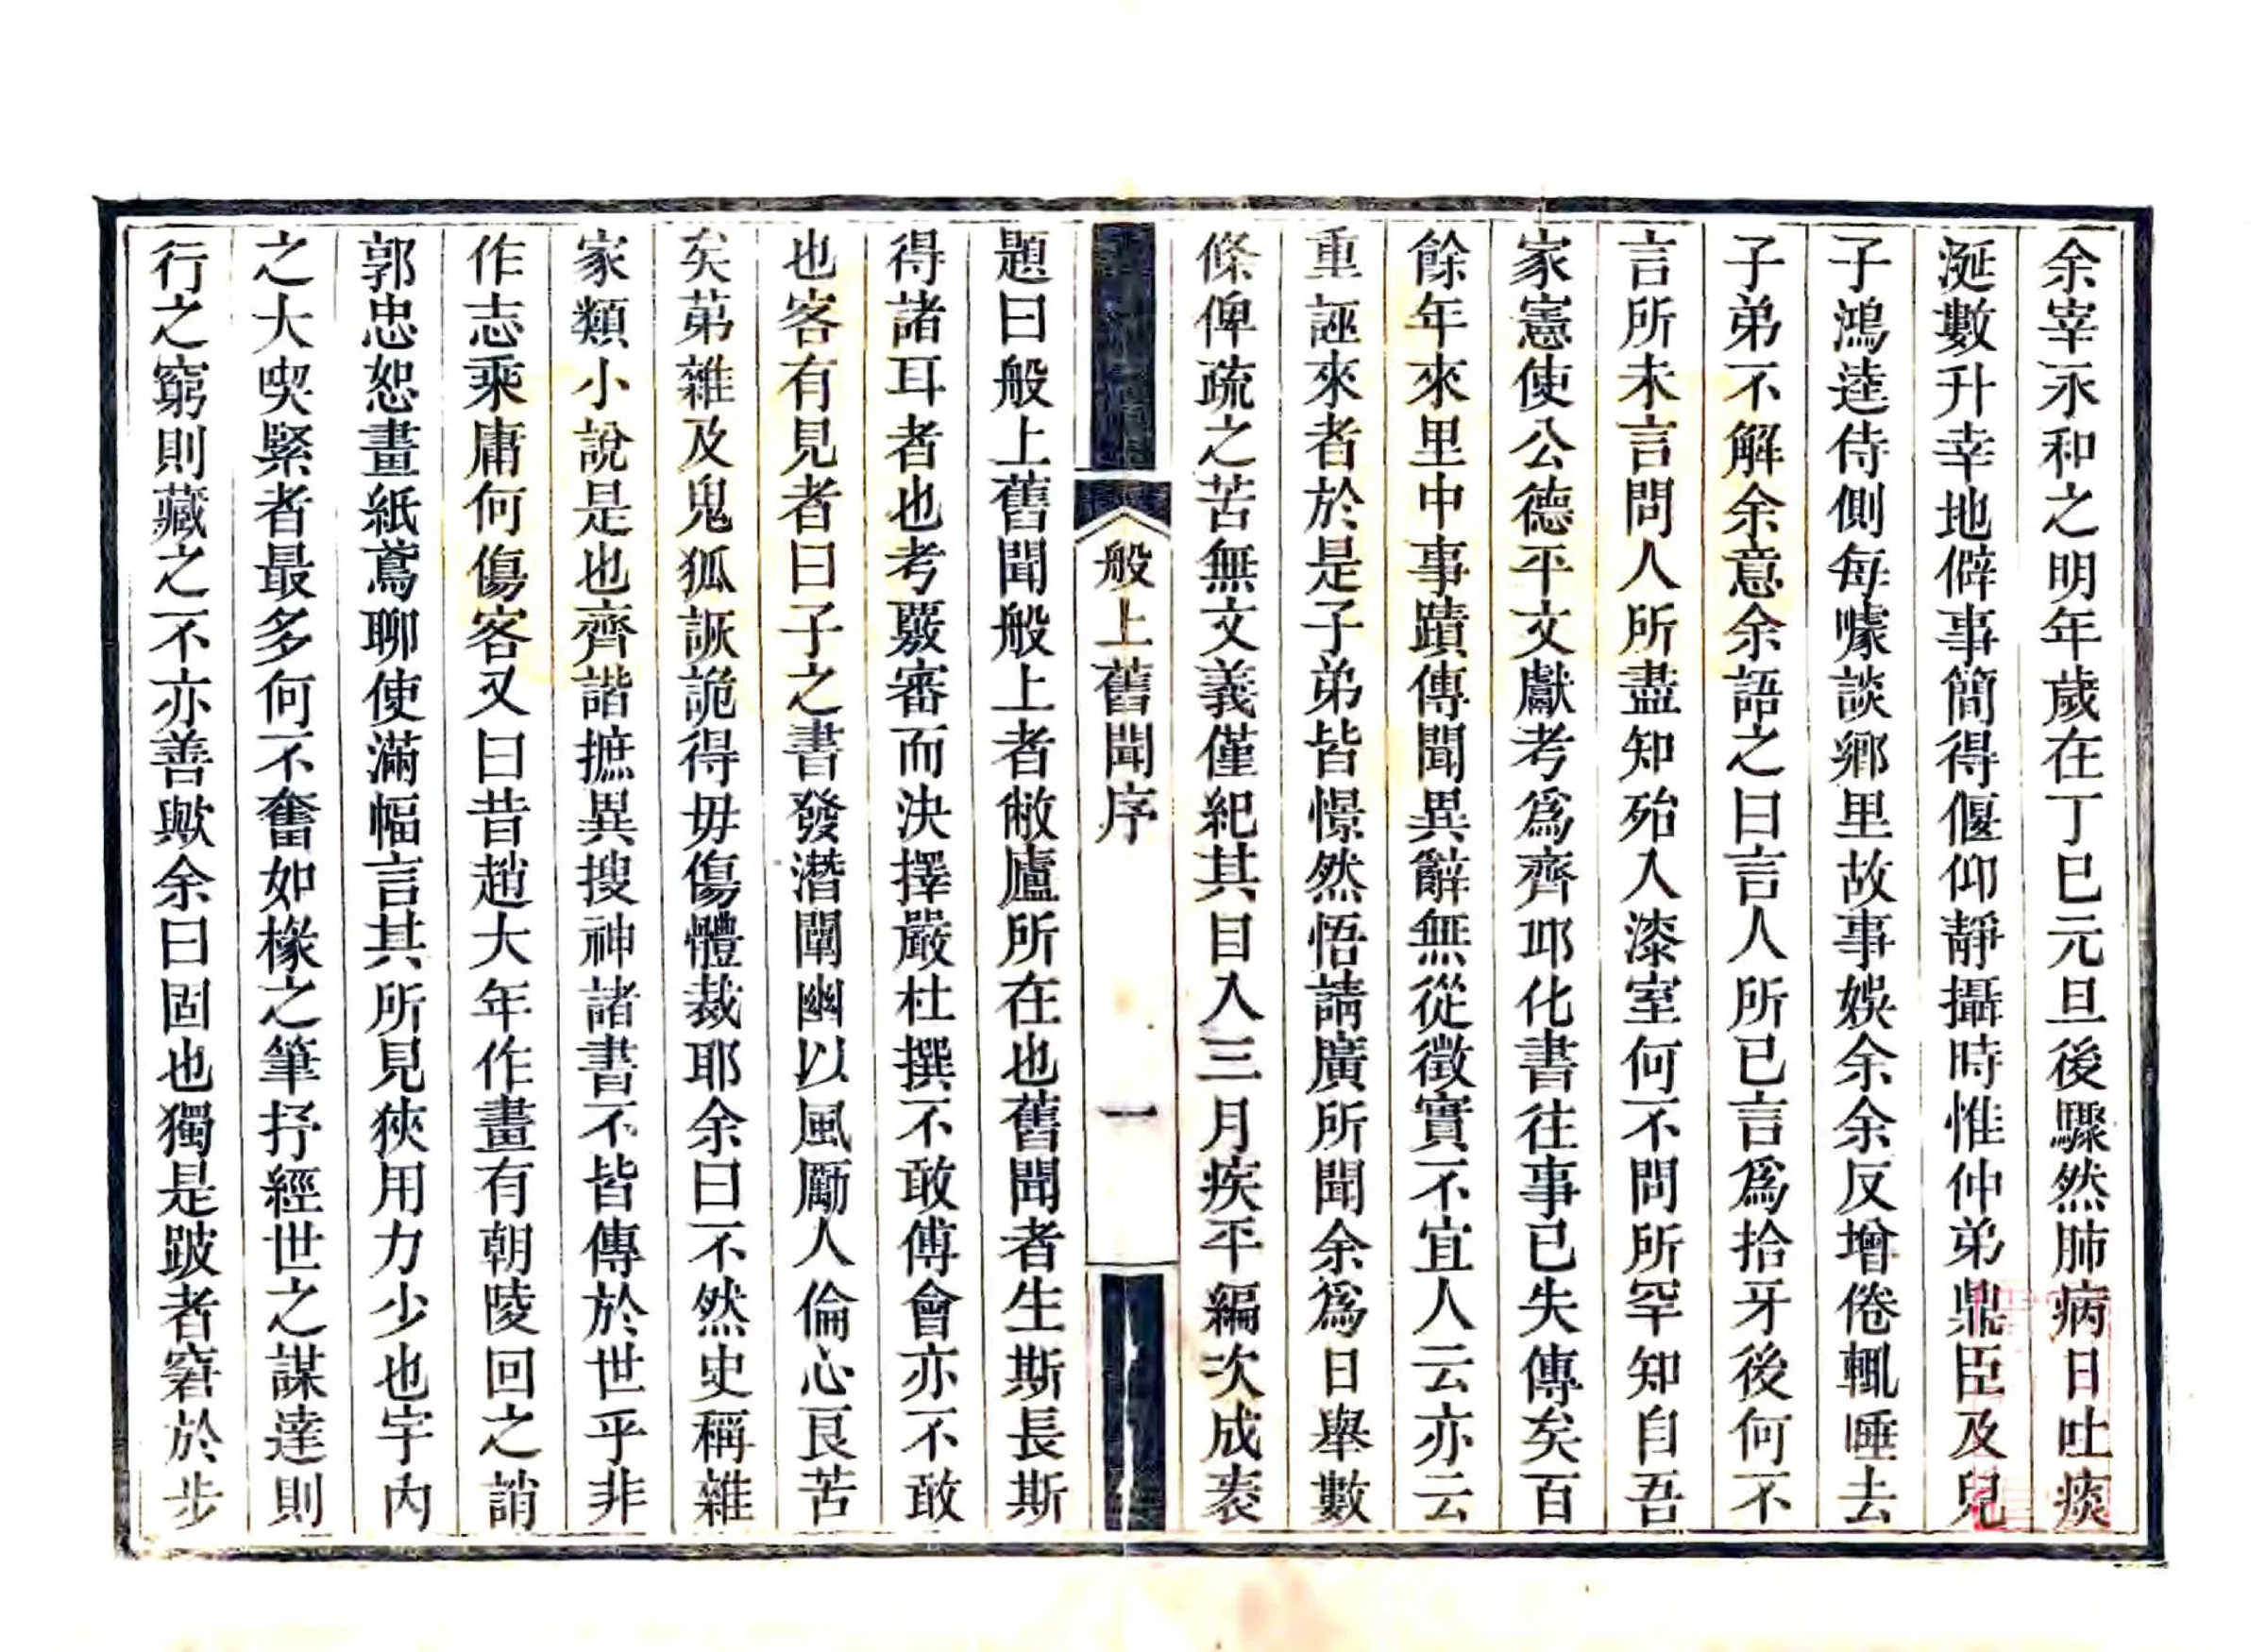 余宰永和之明年歲在丁巳元旦後驟然肺病日吐痰
涎數升幸地僻事簡得偃仰靜攝時惟仲弟鼎臣及兒
子鴻逵侍側每㘌談鄉里故事娛余余反增倦輒睡去
子弟不解余意余語之曰言人所已言爲拾牙後何不
言所未言問人所盡知殆入漆室何不問所罕知自吾
家憲使公德平文獻考爲齊耶化書往事已失傳矣百
餘年來里中事蹟傳聞異辭無從徵實不宜人云亦云
重誣來者於是子弟皆憬然悟請廣所聞余爲日舉數
條俾疏之苦無文義僅紀其目入三月疾平編次成袠
般上舊聞序
一
題曰般上舊聞般上者敝廬所在也舊聞者生斯長斯
得諸耳者也考覈審而決擇嚴杜撰不敢傅會亦不敢
也客有見者曰子之書發潛闡幽以風勵人倫心良苦
矣苐雜及鬼狐詼詭得毋傷體裁耶余曰不然史稱雜
家類小說是也齊諧摭異搜神諸書不皆傳於世乎非
作志乘庸何傷客又曰昔趙大年作畫有朝陵回之誚
郭忠恕畫紙鳶聊使滿幅言其所見狹用力少也宇內
之大喫緊者最多何不奮如椽之筆抒經世之謀達則
行之窮則藏之不亦善歟余曰固也獨是跛者窘於步